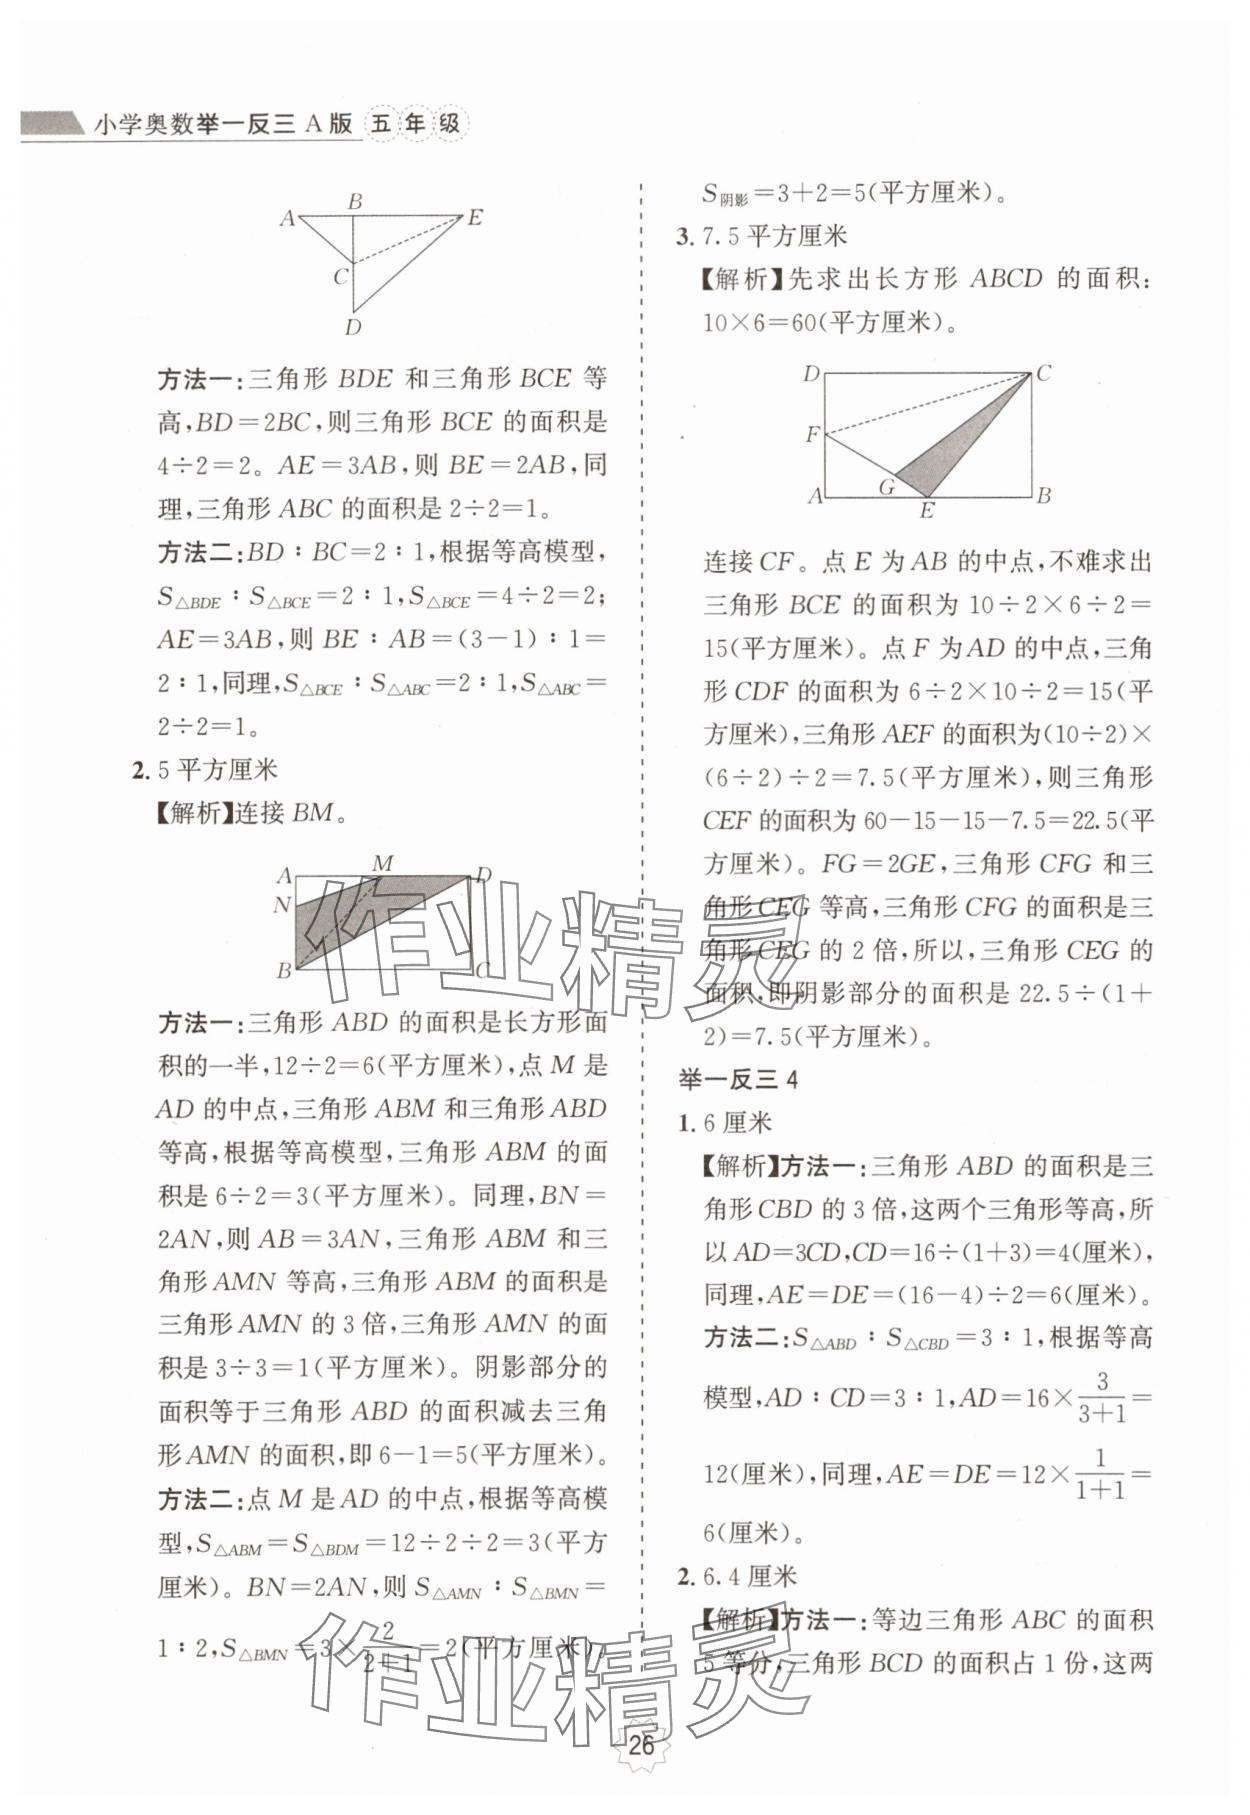 小学奥数举一反三 A 版 五年级
A B E
C
D
方法一:三角形 BDE 和三角形 BCE 等
高,BD=2BC,则三角形 BCE 的面积是
4÷2=2。AE=3AB,则 BE=2AB,同
理,三角形 ABC 的面积是 2÷2=1。
方法二:BD∶BC=2∶1,根据等高模型,
S△BDE∶S△BCE=2∶1,S△BCE=4÷2=2;
AE=3AB,则 BE∶AB=(3-1)∶1=
2∶1,同理,S△BCE∶S△ABC=2∶1,S△ABC=
2÷2=1。
2. 5 平方厘米
【解析】连接 BM。
A M D
N
B C
方法一:三角形 ABD 的面积是长方形面
积的一半,12÷2=6(平方厘米),点 M 是
AD 的中点,三角形 ABM 和三角形 ABD
等高,根据等高模型,三角形 ABM 的面
积是 6÷2=3(平方厘米)。同理,BN=
2AN,则 AB=3AN,三角形 ABM 和三
角形 AMN 等高,三角形 ABM 的面积是
三角形 AMN 的 3 倍,三角形 AMN 的面
积是 3÷3=1(平方厘米)。阴影部分的
面积等于三角形 ABD 的面积减去三角
形 AMN 的面积,即 6-1=5(平方厘米)。
方法二:点 M 是 AD 的中点,根据等高模
型,S△ABM=S△BDM=12÷2÷2=3(平方
厘米)。BN=2AN,则 S△AMN∶S△BMN=
1∶2,S△BMN=3×2/(2+1)=2(平方厘米),
S阴影=3+2=5(平方厘米)。
3. 7.5 平方厘米
【解析】先求出长方形 ABCD 的面积:
10×6=60(平方厘米)。
D C
F
G
A E B
连接 CF。点 E 为 AB 的中点,不难求出
三角形 BCE 的面积为 10÷2×6÷2=
15(平方厘米)。点 F 为 AD 的中点,三角
形 CDF 的面积为 6÷2×10÷2=15(平
方厘米),三角形 AEF 的面积为(10÷2)×
(6÷2)÷2=7.5(平方厘米),则三角形
CEF 的面积为 60-15-15-7.5=22.5(平
方厘米)。FG=2GE,三角形 CFG 和三
角形 CEG 等高,三角形 CFG 的面积是三
角形 CEG 的 2 倍,所以,三角形 CEG 的
面积,即阴影部分的面积是 22.5÷(1+
2)=7.5(平方厘米)。
举一反三 4
1. 6 厘米
【解析】方法一:三角形 ABD 的面积是三
角形 CBD 的 3 倍,这两个三角形等高,所
以 AD=3CD,CD=16÷(1+3)=4(厘米),
同理,AE=DE=(16-4)÷2=6(厘米)。
方法二:S△ABD∶S△CBD=3∶1,根据等高
模型,AD∶CD=3∶1,AD=16×3/(3+1)=
12(厘米),同理,AE=DE=12×1/(1+1)=
6(厘米)。
2. 6.4 厘米
【解析】方法一:等边三角形 ABC 的面积
5 等分,三角形 BCD 的面积占 1 份,这两
作业精灵
作业精灵
26